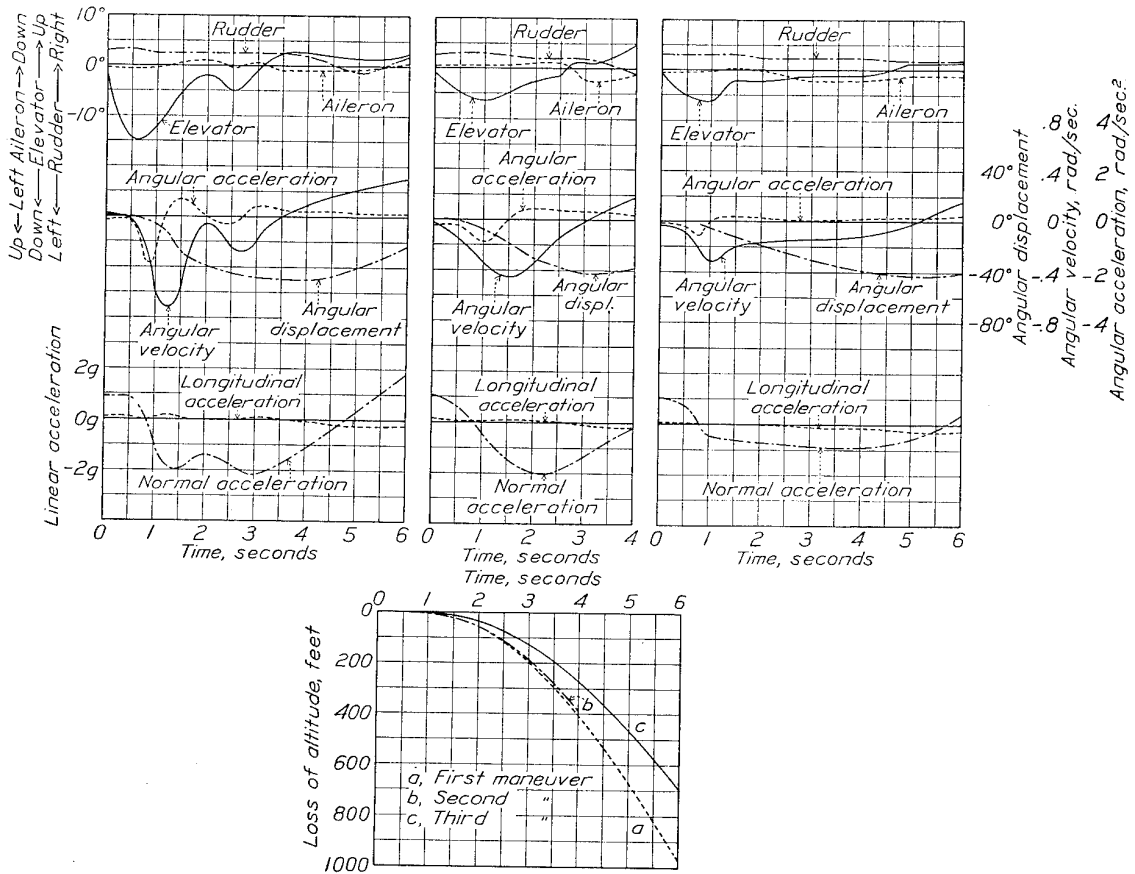 Up←Left Aileron→Down
Down←Elevator→Up
Left←Rudder→Right
10°
0°
-10°
Rudder
Aileron
Elevator
Angular acceleration
Angular
velocity
Angular
displacement
Linear acceleration
2g
0g
-2g
Longitudinal
acceleration
Normal acceleration
0 1 2 3 4 5 6
Time, seconds
Rudder
Aileron
Elevator
Angular
acceleration
Angular
velocity
Angular
displ.
Longitudinal
acceleration
Normal
acceleration
0 1 2 3 4
Time, seconds
Rudder
Aileron
Elevator
Angular acceleration
Angular
velocity
Angular
displacement
Longitudinal
acceleration
Normal acceleration
0 1 2 3 4 5 6
Time, seconds
40°
0°
-40°
-80°
Angular displacement
.8
.4
0
-.4
-.8
Angular velocity, rad/sec.
4
2
0
-2
-4
Angular acceleration, rad/sec.²
Time, seconds
0 1 2 3 4 5 6
Loss of altitude, feet
0
200
400
600
800
1000
b
c
a
a, First maneuver
b, Second "
c, Third "